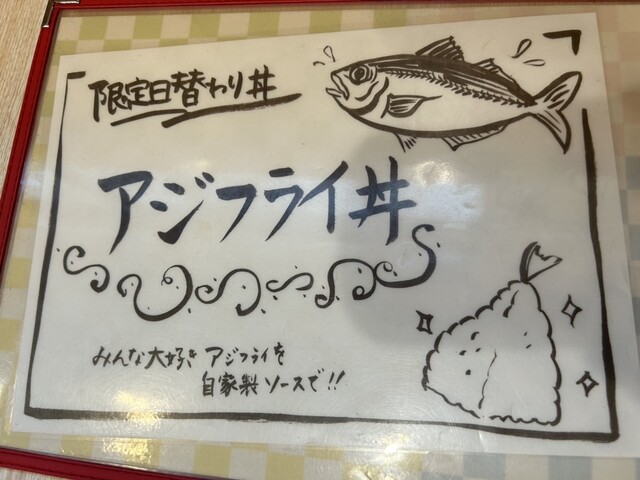 限定日替わり丼
アジフライ丼
みんな大好き アジフライを
自家製ソースで!!